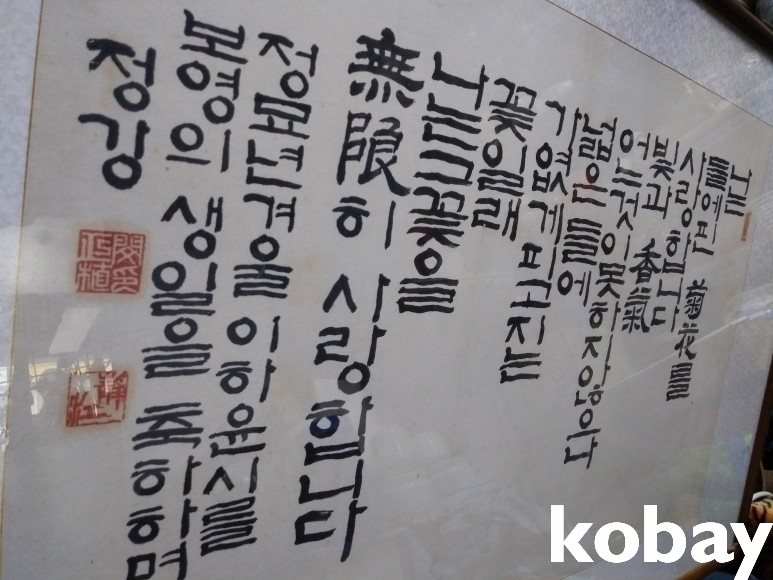 나는
들에 핀 菊花를
사랑합니다
빛과 香氣
어느것이 못하지 않으나
넓은 들에
가엾게 피고 지는
꽃일래
나는 그 꽃을
無限히 사랑합니다
정묘년 겨울 이하윤 시를
보영의 생일을 축하하며
정강
靜江
kobay